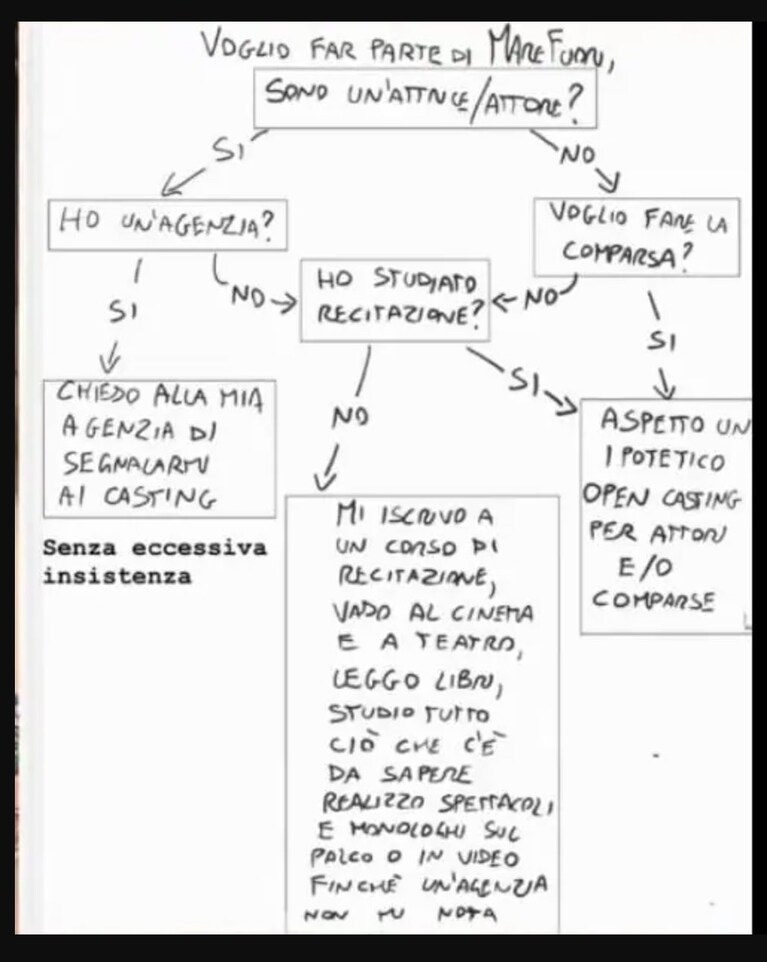 VOGLIO FAR PARTE DI MARE FUORI,
SONO UN'ATTRICE/ATTORE?
SI
NO
HO UN'AGENZIA?
VOGLIO FARE LA
COMPARSA?
SI
NO
HO STUDIATO
RECITAZIONE?
NO
SI
CHIEDO ALLA MIA
AGENZIA DI
SEGNALARMI
AI CASTING
Senza eccessiva
insistenza
NO
SI
ASPETTO UN
IPOTETICO
OPEN CASTING
PER ATTORI
E/O
COMPARSE
MI ISCRIVO A
UN CORSO DI
RECITAZIONE,
VADO AL CINEMA
E A TEATRO,
LEGGO LIBRI,
STUDIO TUTTO
CIÒ CHE C'È
DA SAPERE
REALIZZO SPETTACOLI
E MONOLOGHI SUL
PALCO O IN VIDEO
FINCHÈ UN'AGENZIA
NON MI NOTA